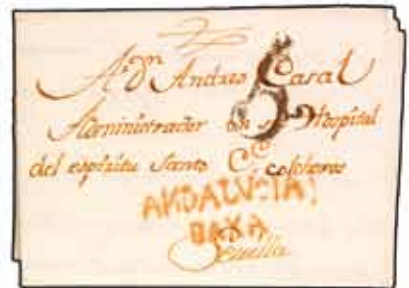 A Dn Andres Casal
Administrador del Hospital
del espiritu Santo Ce colcheros
ANDALUCIA
BAXA
Sevilla